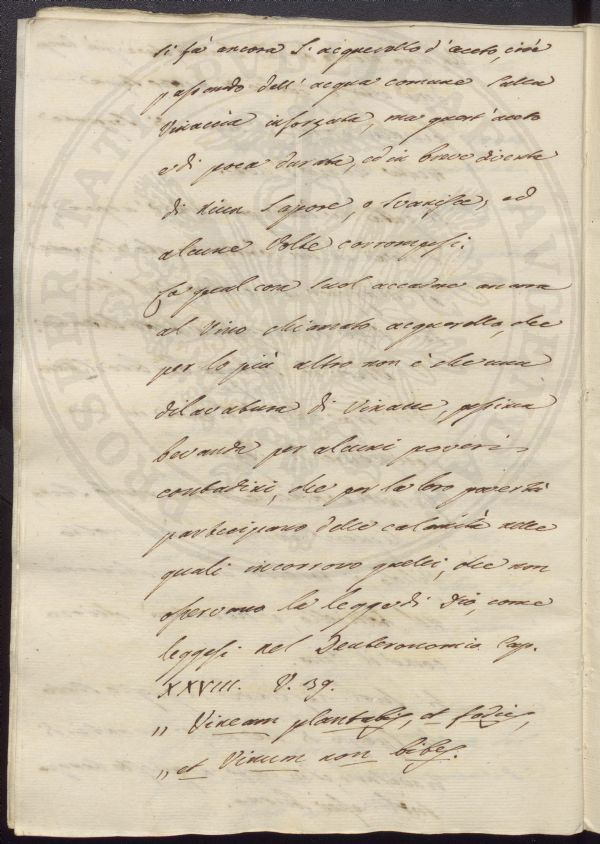 si fà ancora l'acquerello d'aceto, cioè
passando dell'acqua comune sulla
Vinaccia inforzata, ma quest'aceto
è di poca durata, ed in breve diventa
di niun Sapore, o Svanisce, ed
alcune Volte corrompesi.
La qual cosa suol accadere ancora
al Vino chiamato acquerello, che
per lo più altro non è che una
dilavatura di Vinacce, pessima
bevanda per alcuni poveri
contadini, che per la loro povertà
partecipano delle calamità nelle
quali incorrono quelli, che non
osservano la legge di Dio, come
leggesi nel Deuteronomio Cap.
XXVIII. V. 39.
„ Vineam plantabis, et fodies,
„ et Vinum non bibes.
PROSPERITATI PUBLICAE AUGENDAE